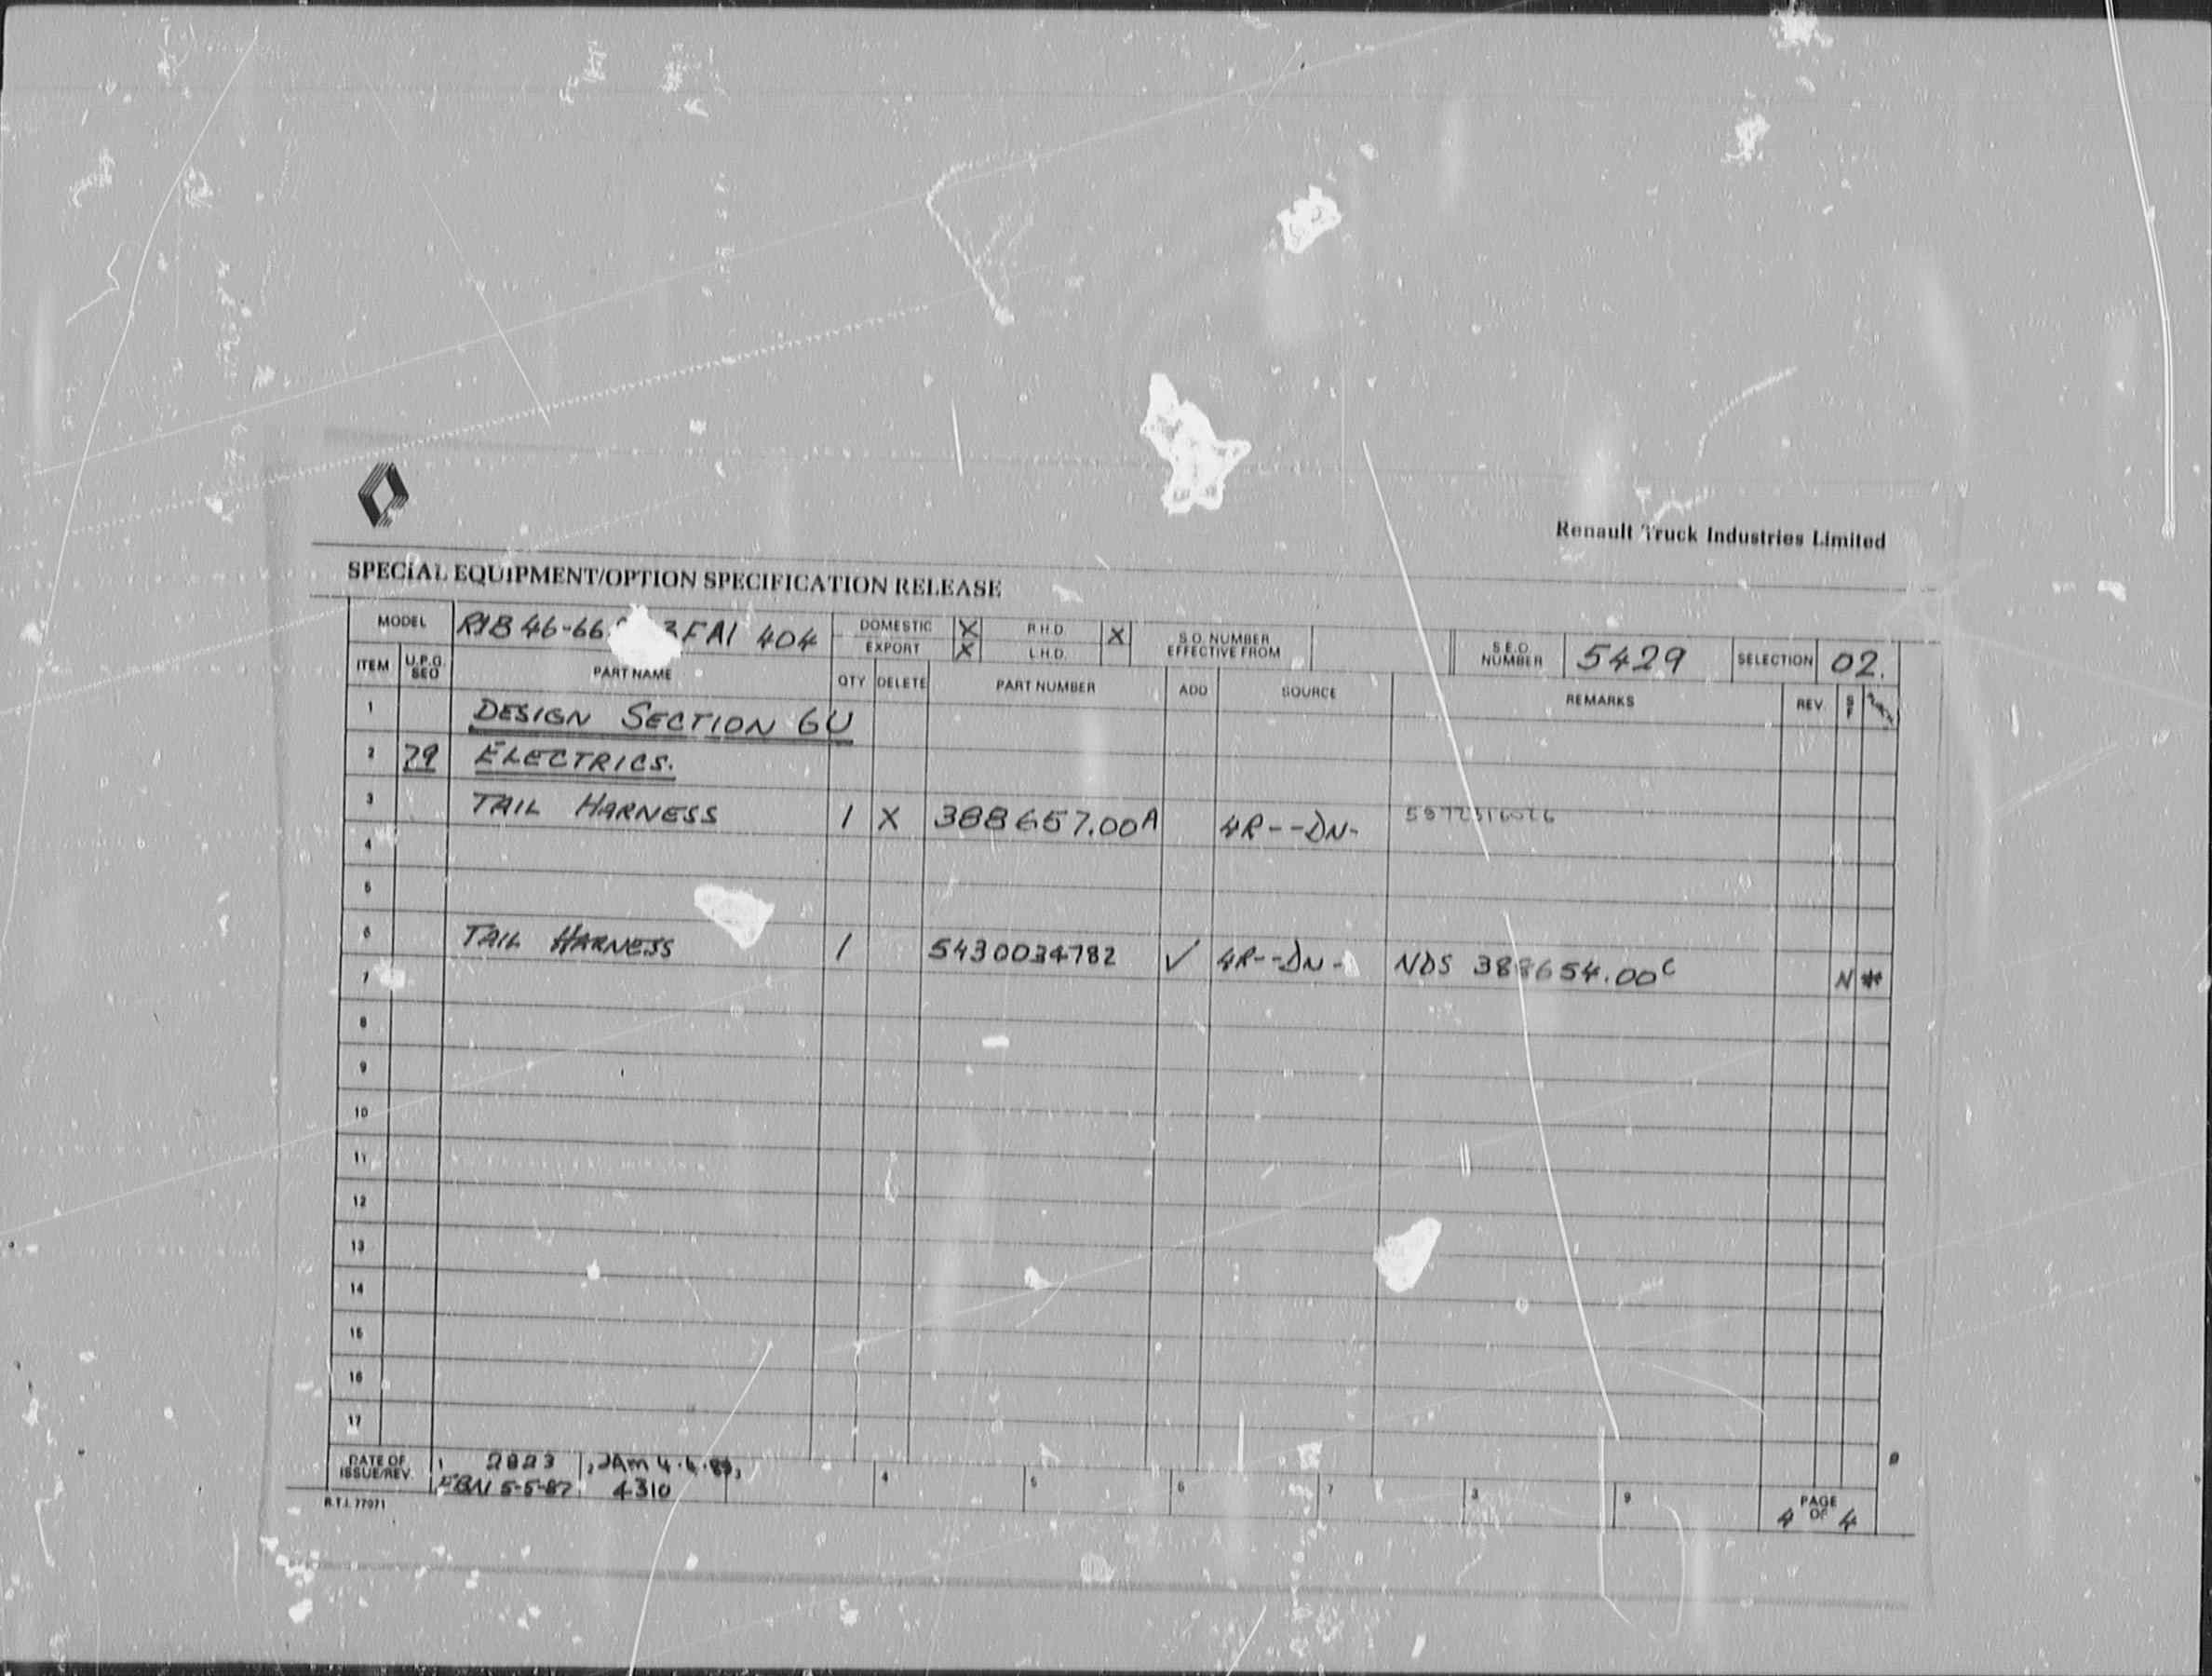 Renault Truck Industries Limited
SPECIAL EQUIPMENT/OPTION SPECIFICATION RELEASE
MODEL 404 DOMESTIC X R.H.D. X S.O. NUMBER EFFECTIVE FROM S.E.O. NUMBER 5429 SELECTION 02.
EXPORT X L.H.D.
ITEM U.P.G. SEQ PART NAME QTY DELETE PART NUMBER ADD SOURCE REMARKS REV S F
1 DESIGN SECTION 6U
2 79 ELECTRICS.
3 TAIL HARNESS 1 X 388657.00A 4R--DN-
4
5
6 TAIL HARNESS 1 5430034782 ✓ 4R--DN- NDS 388654.00C N *
7
8
9
10
11
12
13
14
15
16
17
DATE OF ISSUE/REV. 1 2 3 4 5 6 7 9 PAGE 4 OF 4
5-5-87 4310
R.T.I. 77071